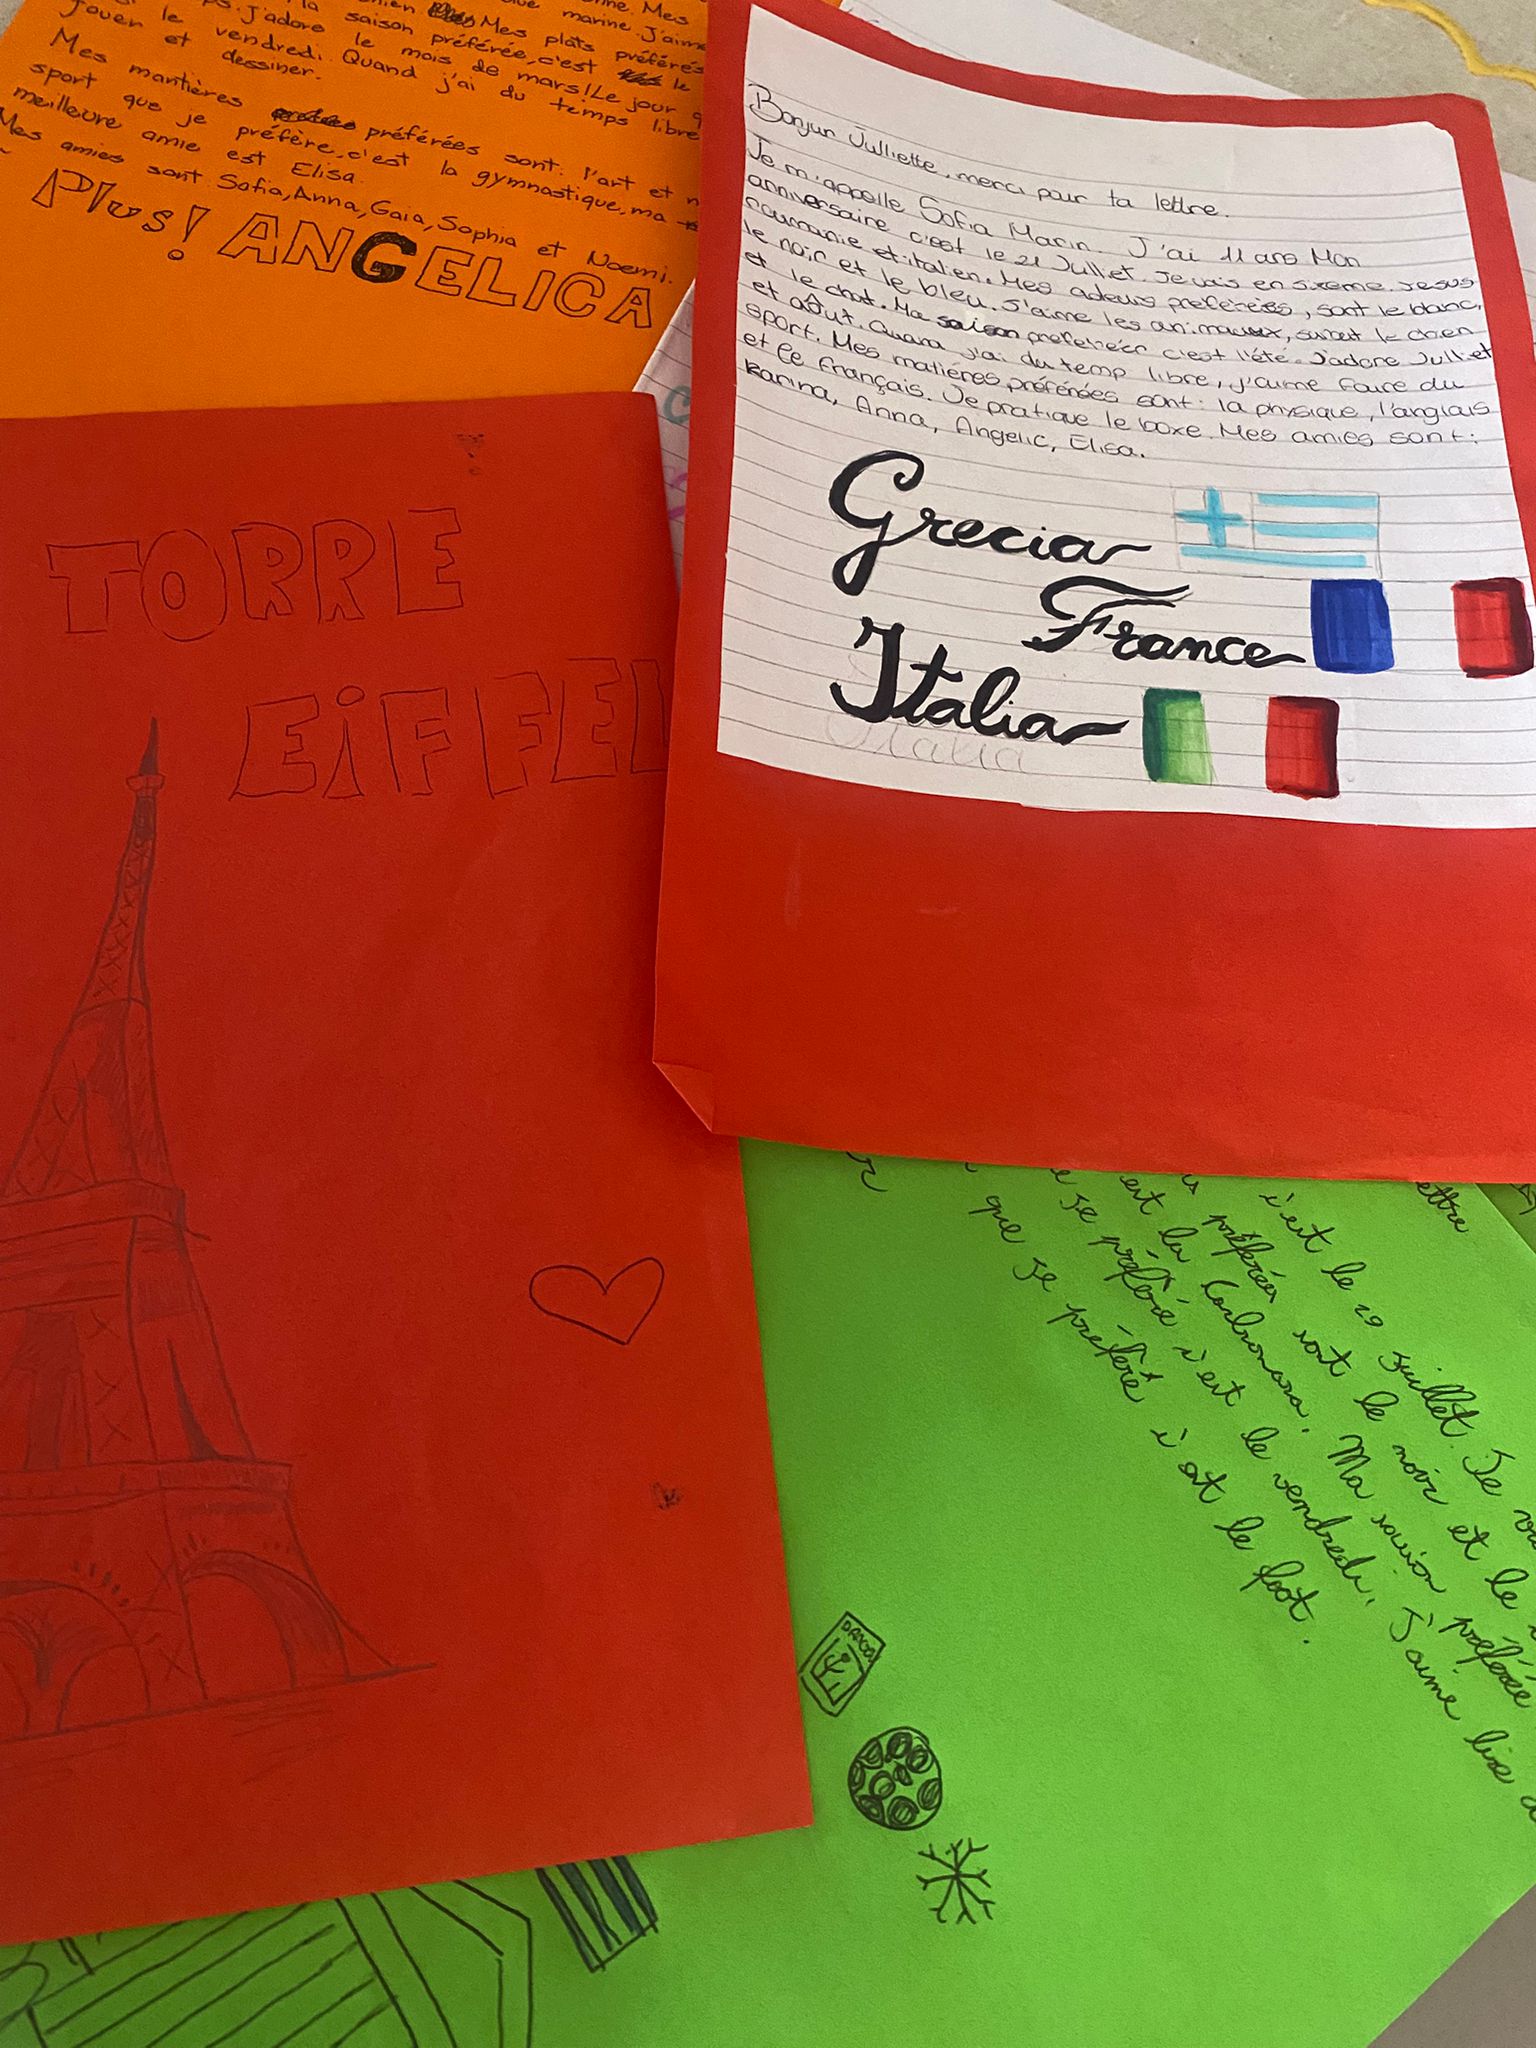 la saison préférée, c'est le
J'adore le mois de mars! Le jour
le vendredi. Quand j'ai du temps libre
et dessiner.
Mes mantières préférées sont: l'art et
sport que je préfère, c'est la gymnastique, ma
meilleure amie est Elisa.
Mes amies sont Safia, Anna, Gaia, Sophia et Noemi.
Plus! ANGELICA
TORRE
EIFFEL
Bonjur Julliette, merci pour ta lettre.
Je m'appelle Sofia Marin. J'ai 11 ans Mon
anniversaire c'est le 21 Julliet. Je vais en sixeme. Je sus
roumanie et italien. Mes preferées, sont le blanc,
le noir et le bleu. J'aime les animaux, surtut le chien
et le chat. Ma saison preferéér c'est l'été. J'adore Julliet
et aôut. Quand j'ai du temp libre, j'aime faire du
sport. Mes matiéres préférées sont: la physique, l'anglais
et le français. Je pratique le boxe. Mes amies sont:
Karina, Anna, Angelic, Elisa.
Grecia
France
Italia
Italia
ettre
c'est le 29 Juillet. Je
préférées sont le noir et le
est la Carbonara. Ma saison préférée
se préféré c'est le vendredi. J'aime lire
que je préféré c'est le foot.